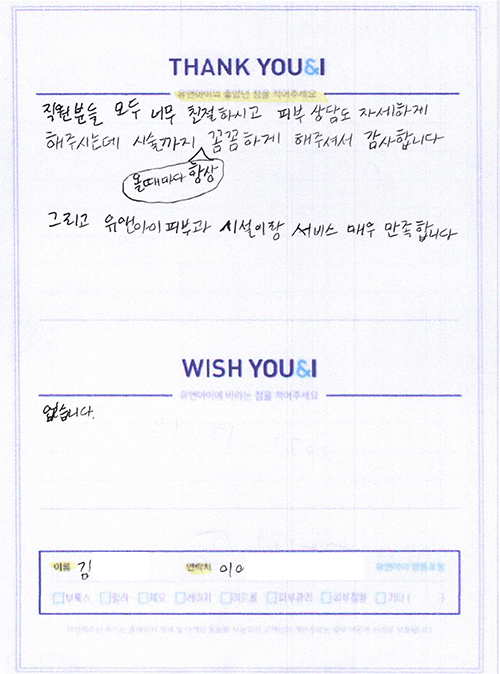 THANK YOU&I
유앤아이의 좋았던 점을 적어주세요
직원분들 모두 너무 친절하시고 피부 상담도 자세하게
해주시는데 시술까지 꼼꼼하게 해주셔서 감사합니다
올때마다 항상
그리고 유앤아이피부과 시설이랑 서비스 매우 만족합니다
WISH YOU&I
유앤아이에 바라는 점을 적어주세요
없습니다.
이름 김 연락처 010 유앤아이 영등포점
보톡스 필러 제모 레이저 여드름 피부관리 피부질환 기타 ( )